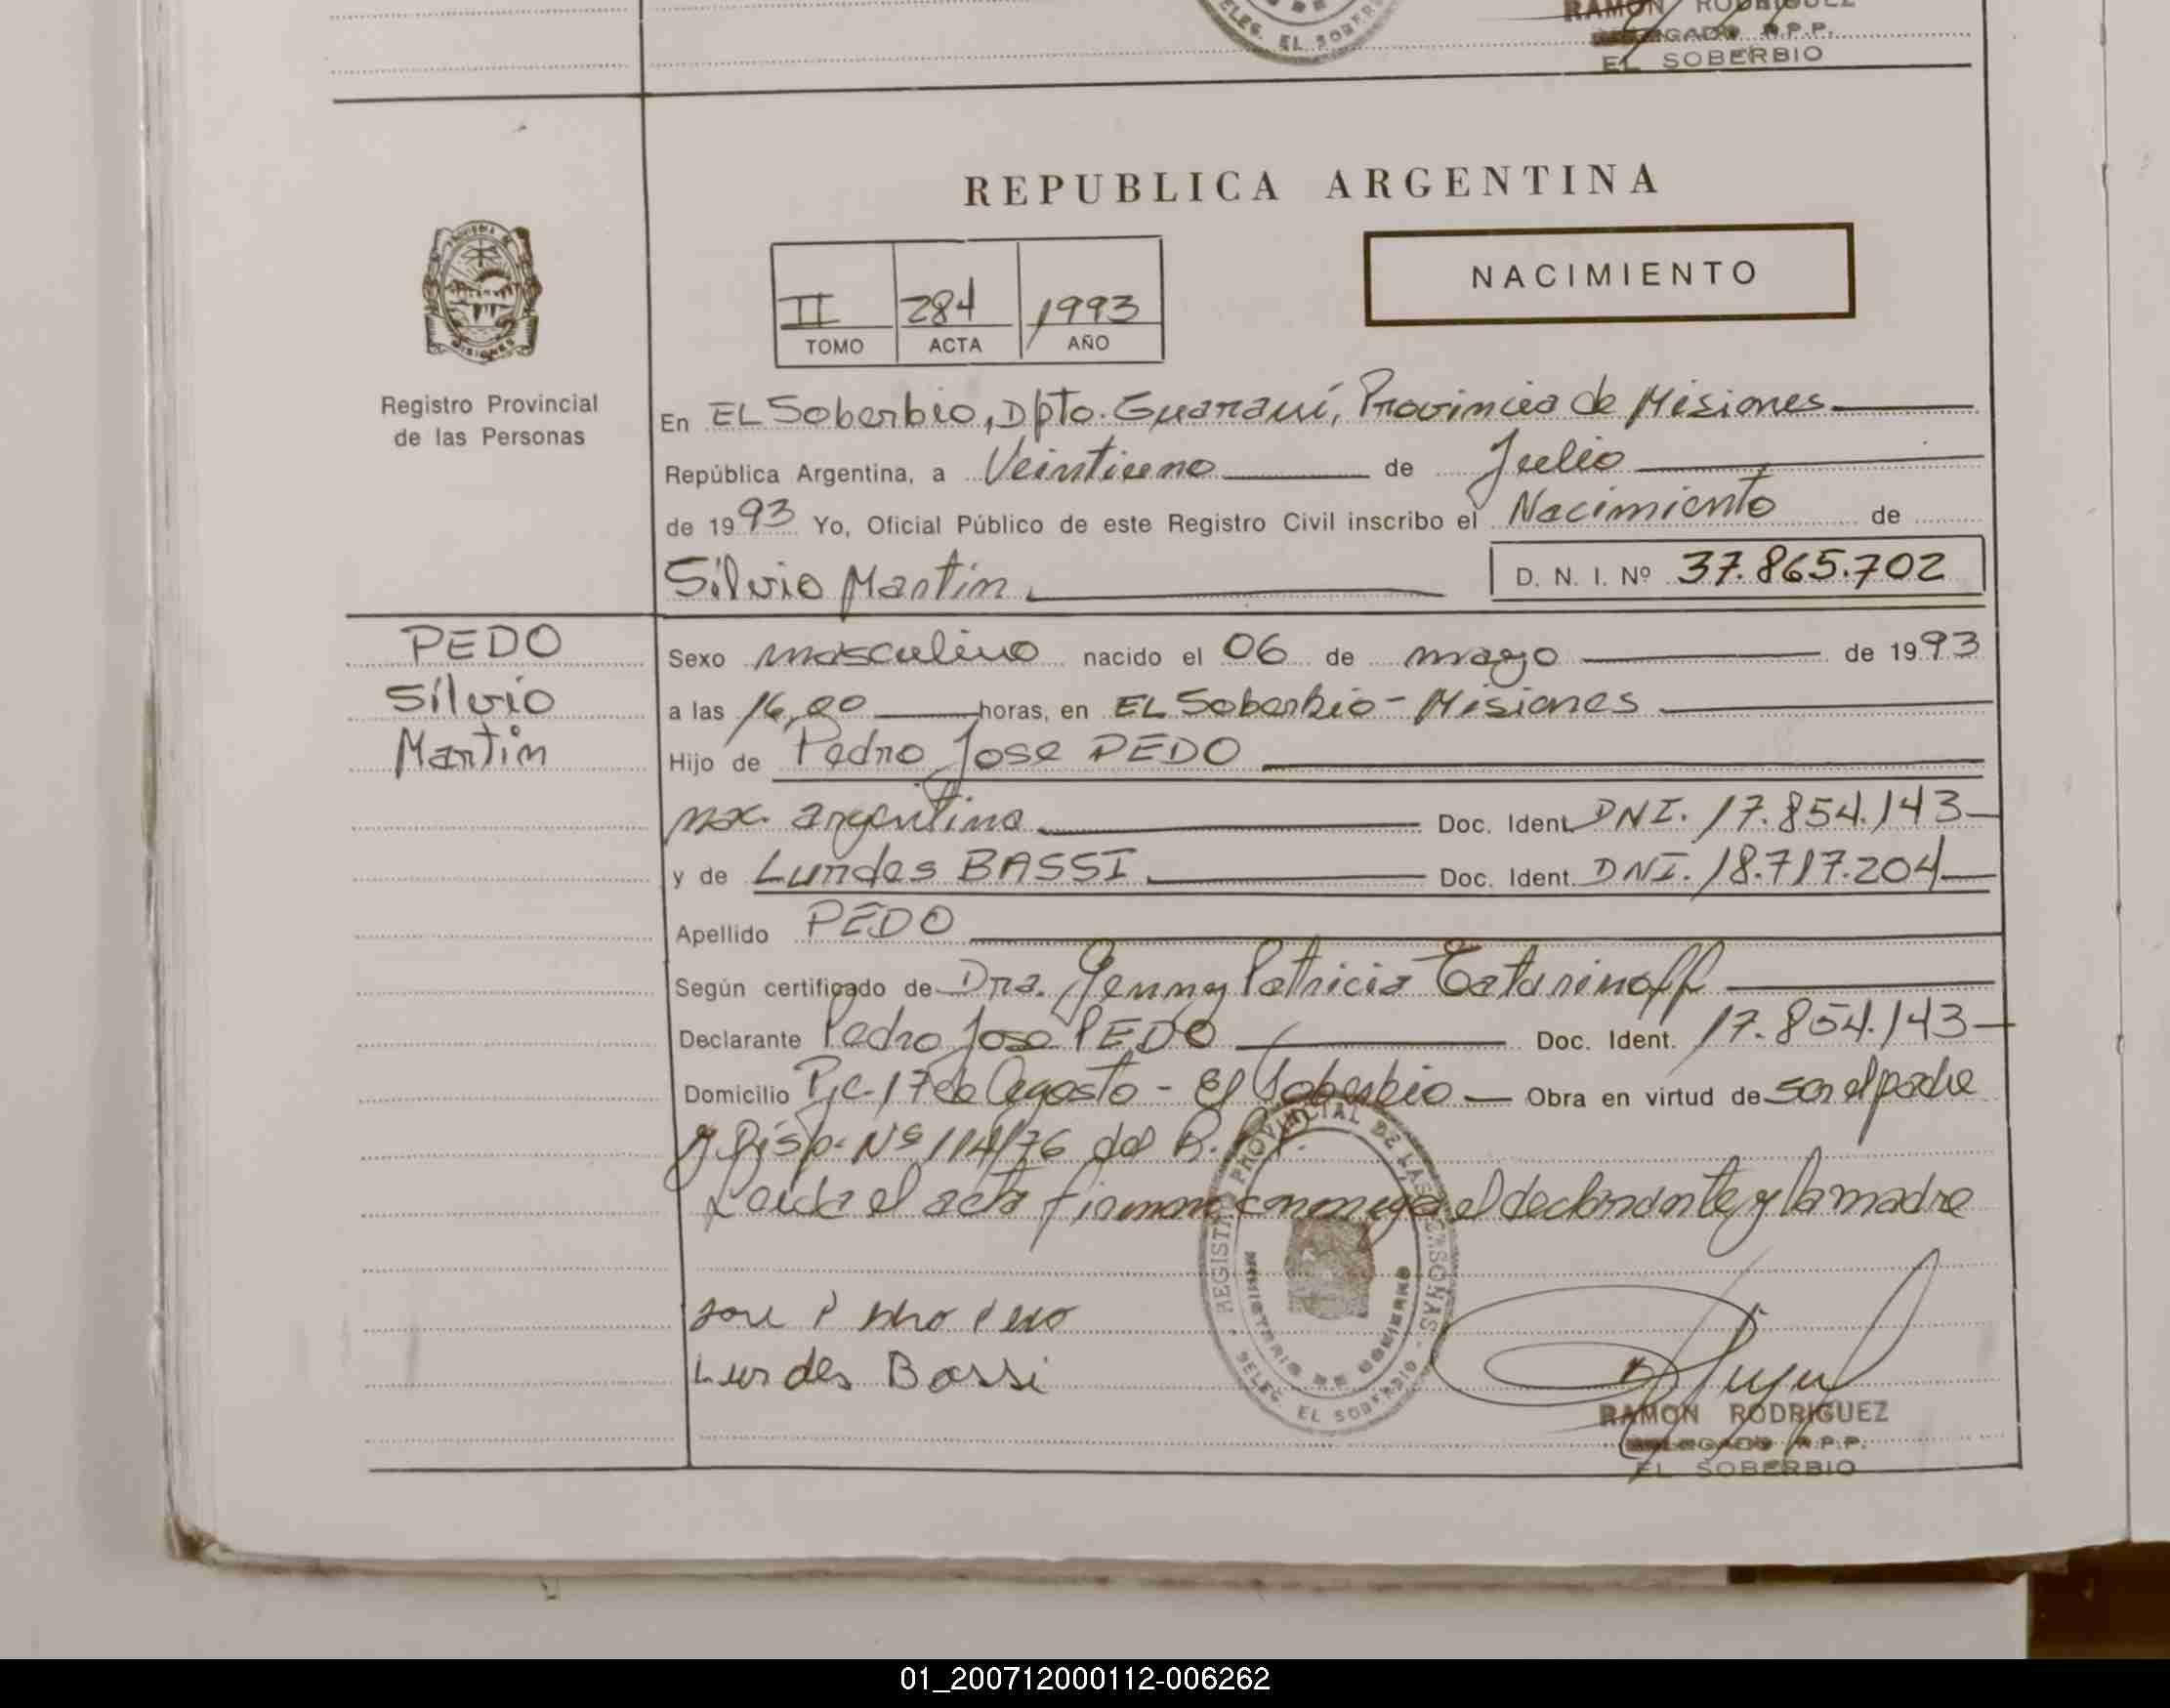 DELEG. EL SOBERBIO
RAMON RODRIGUEZ
DELEGADO R.P.P.
EL SOBERBIO
REPUBLICA ARGENTINA
NACIMIENTO
II 284 1993
TOMO ACTA AÑO
PROVINCIA DE MISIONES
Registro Provincial
de las Personas
En EL Soberbio, Dpto. Guaraní, Provincia de Misiones
República Argentina, a Veintiuno de Julio
de 1993 Yo, Oficial Público de este Registro Civil inscribo el Nacimiento de
Silvio Martin D. N. I. Nº 37.865.702
PEDO
Silvio
Martin
Sexo masculino nacido el 06 de mayo de 1993
a las 16,00 horas, en EL Soberbio - Misiones
Hijo de Pedro Jose PEDO
nac. argentina Doc. Ident. DNI. 17.854.143
y de Lurdes BASSI Doc. Ident. DNI. 18.717.204
Apellido PEDO
Según certificado de Dra. Jenny Patricia Tatarinoff
Declarante Pedro Jose PEDO Doc. Ident. 17.854.143
Domicilio Pje. 17 de Agosto - El Soberbio Obra en virtud de ser el padre
y Disp. Nº 114/76 del R.P.P.
Leida el acta firman conmigo el declarante y la madre
Lurdes Bassi
REGISTRO PROVINCIAL DE LAS PERSONAS
MINISTERIO DE GOBIERNO
DELEG. EL SOBERBIO
RAMON RODRIGUEZ
DELEGADO R.P.P.
EL SOBERBIO
01_200712000112-006262